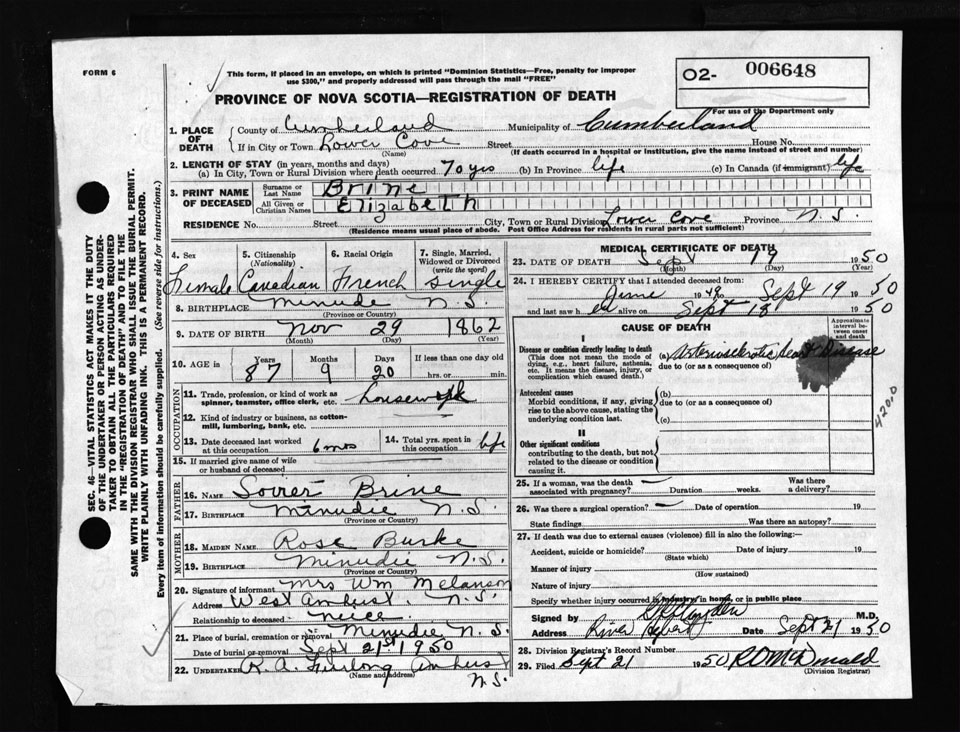 FORM 6
This form, if placed in an envelope, on which is printed "Dominion Statistics—Free, penalty for improper
use $300," and properly addressed will pass through the mail "FREE"
O2- 006648
For use of the Department only
PROVINCE OF NOVA SCOTIA—REGISTRATION OF DEATH
1. PLACE OF DEATH
County of Cumberland Municipality of Cumberland
If in City or Town Lower Cove Street House No.
(Name) (If death occurred in a hospital or institution, give the name instead of street and number)
2. LENGTH OF STAY (in years, months and days)
(a) In City, Town or Rural Division where death occurred 70 yrs (b) In Province life (c) In Canada (if immigrant) life
3. PRINT NAME OF DECEASED
Surname or Last Name Brine
All Given or Christian Names Elizabeth
RESIDENCE No. Street City, Town or Rural Division Lower Cove Province N.S.
(Residence means usual place of abode. Post Office Address for residents in rural parts not sufficient)
4. Sex Female
5. Citizenship (Nationality) Canadian
6. Racial Origin French
7. Single, Married, Widowed or Divorced (write the word) Single
8. BIRTHPLACE Minudie N.S.
(Province or Country)
9. DATE OF BIRTH Nov 29 1862
(Month) (Day) (Year)
10. AGE in Years Months Days If less than one day old
87 9 20 hrs. or min.
OCCUPATION
11. Trade, profession, or kind of work as spinner, teamster, office clerk, etc. housework
12. Kind of industry or business, as cotton-mill, lumbering, bank, etc.
13. Date deceased last worked at this occupation 6 mos
14. Total yrs. spent in this occupation life
15. If married give name of wife or husband of deceased
FATHER
16. NAME Brine
17. BIRTHPLACE Minudie N.S.
(Province or Country)
MOTHER
18. MAIDEN NAME Rose Burke
19. BIRTHPLACE Minudie N.S.
(Province or Country)
20. Signature of informant Mrs Wm Melanson
Address West Amherst, N.S.
Relationship to deceased neice
21. Place of burial, cremation or removal Minudie N.S.
Date of burial or removal Sept 21st 1950
22. UNDERTAKER R. A. Furlong Amherst
(Name and address) N.S.
MEDICAL CERTIFICATE OF DEATH
23. DATE OF DEATH Sept 19 1950
(Month) (Day) (Year)
24. I HEREBY CERTIFY that I attended deceased from:
June 1949 to Sept 19 1950
and last saw h er alive on Sept 18 1950
CAUSE OF DEATH
Approximate interval between onset and death
I
Disease or condition directly leading to death
(This does not mean the mode of dying, e.g., heart failure, asthenia, etc. It means the disease, injury, or complication which caused death.)
(a) Arteriosclerotic Heart Disease
due to (or as a consequence of)
Antecedent causes
Morbid conditions, if any, giving rise to the above cause, stating the underlying condition last.
(b)
due to (or as a consequence of)
(c)
II
Other significant conditions
contributing to the death, but not related to the disease or condition causing it.
4200
25. If a woman, was the death associated with pregnancy? — Duration weeks. Was there a delivery?
26. Was there a surgical operation? — Date of operation 19
State findings Was there an autopsy?
27. If death was due to external causes (violence) fill in also the following:—
Accident, suicide or homicide? Date of injury 19
(State which)
Manner of injury
(How sustained)
Nature of injury
Specify whether injury occurred in industry, in home, or in public place
Signed by M.D.
Address River Hebert Date Sept 21 1950
28. Division Registrar's Record Number
29. Filed Sept 21 1950 R D McDonald
(Division Registrar)
SEC. 46—VITAL STATISTICS ACT MAKES IT THE DUTY
OF THE UNDERTAKER OR PERSON ACTING AS UNDERTAKER
TO OBTAIN ALL THE PARTICULARS REQUIRED
IN THE "REGISTRATION OF DEATH" AND TO FILE THE
SAME WITH THE DIVISION REGISTRAR WHO SHALL ISSUE THE BURIAL PERMIT.
WRITE PLAINLY WITH UNFADING INK. THIS IS A PERMANENT RECORD.
Every item of information should be carefully supplied. (See reverse side for instructions.)